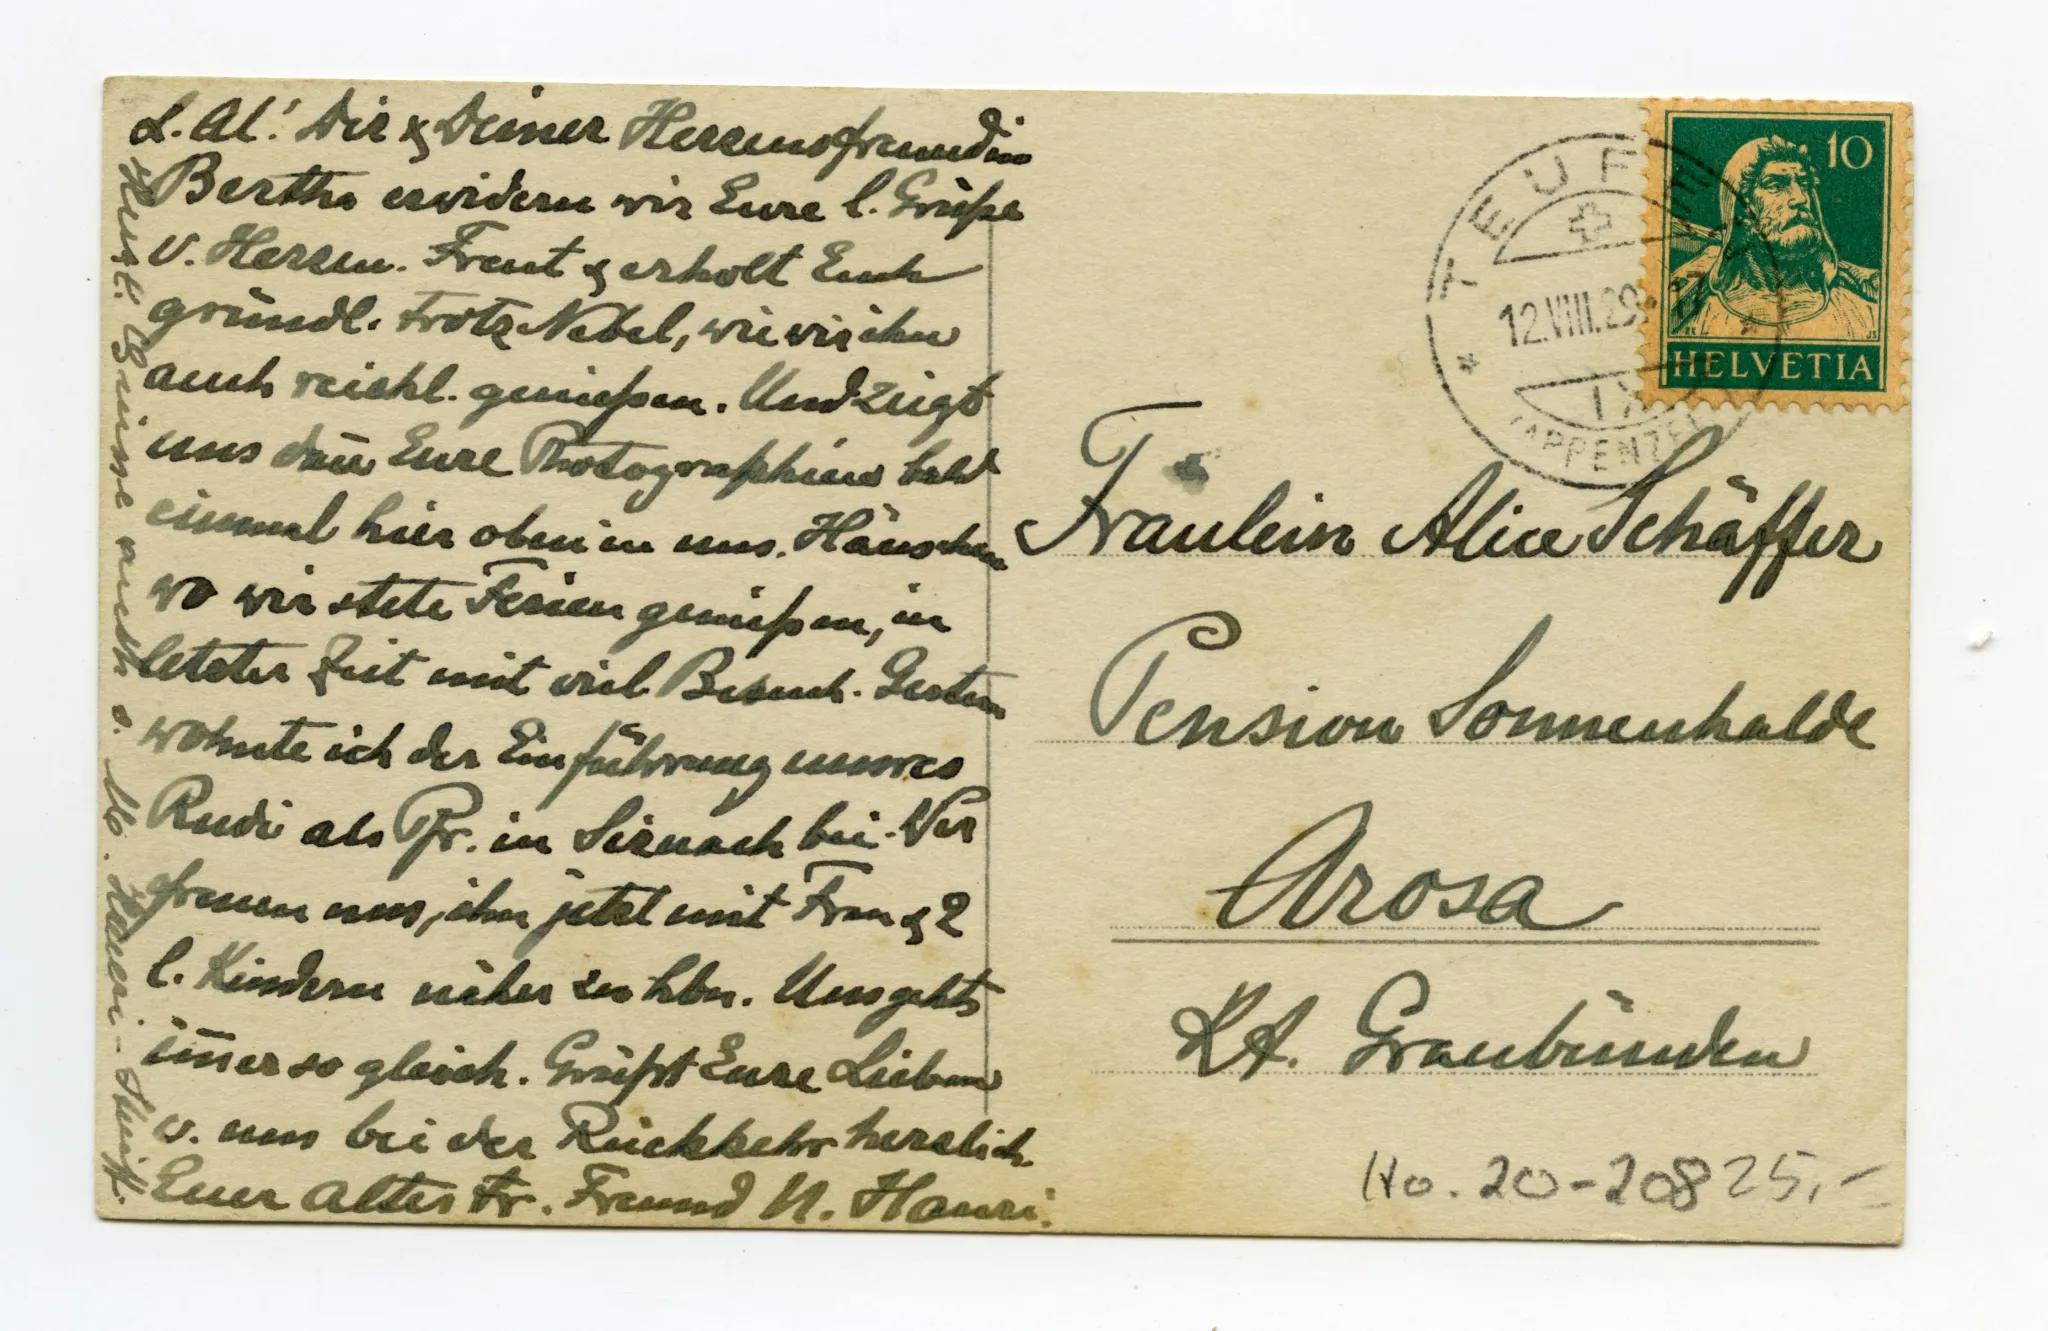 L. Al.! Dir & Deiner Herzensfreundin
Bertha erwidern wir Eure l. Grüße
v. Herzen. Freut & erholt Euch
gründl. trotz Nebel, wie wir ihn
auch reichl. genießen. Und zeigt
uns dañ Eure Photographien bald
einmal hier oben in uns. Häuschen
wo wir stete Ferien genießen, in
letzter Zeit mit viel Besuch. Gestern
wohnte ich der Einführung unseres
Rudi als Pfr. in Sirnach bei. Wir
freuen uns, ihn jetzt mit Frau & 2
l. Kindern näher zu hbn. Uns gehts
im̄er so gleich. Grüßt Eure Lieben
v. uns bei der Rückkehr herzlich.
Euer alter tr. Freund U. Hauri.
Herzl. Grüsse auch v. M. Hauri-
TEUFEN
12.VIII.29
IX
(APPENZELL)
10
HELVETIA
Fräulein Alice Schäffer
Pension Sonnenhalde
Arosa
Kt. Graubünden
Ho. 20-208 25,-